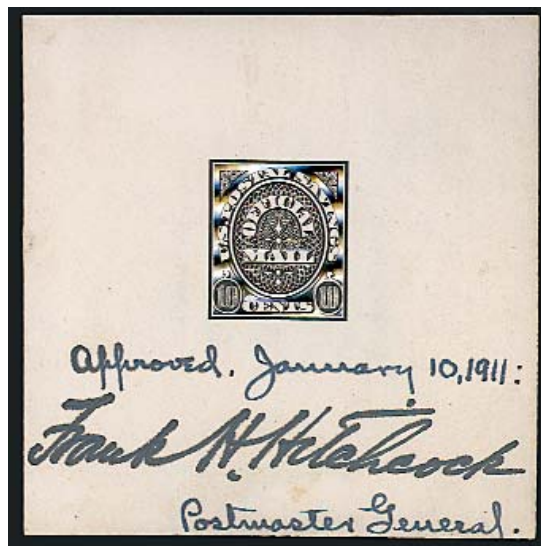 U.S. POSTAL SAVINGS
OFFICIAL
MAIL
10 CENTS 10
Approved, January 10, 1911:
Frank H. Hitchcock
Postmaster General.